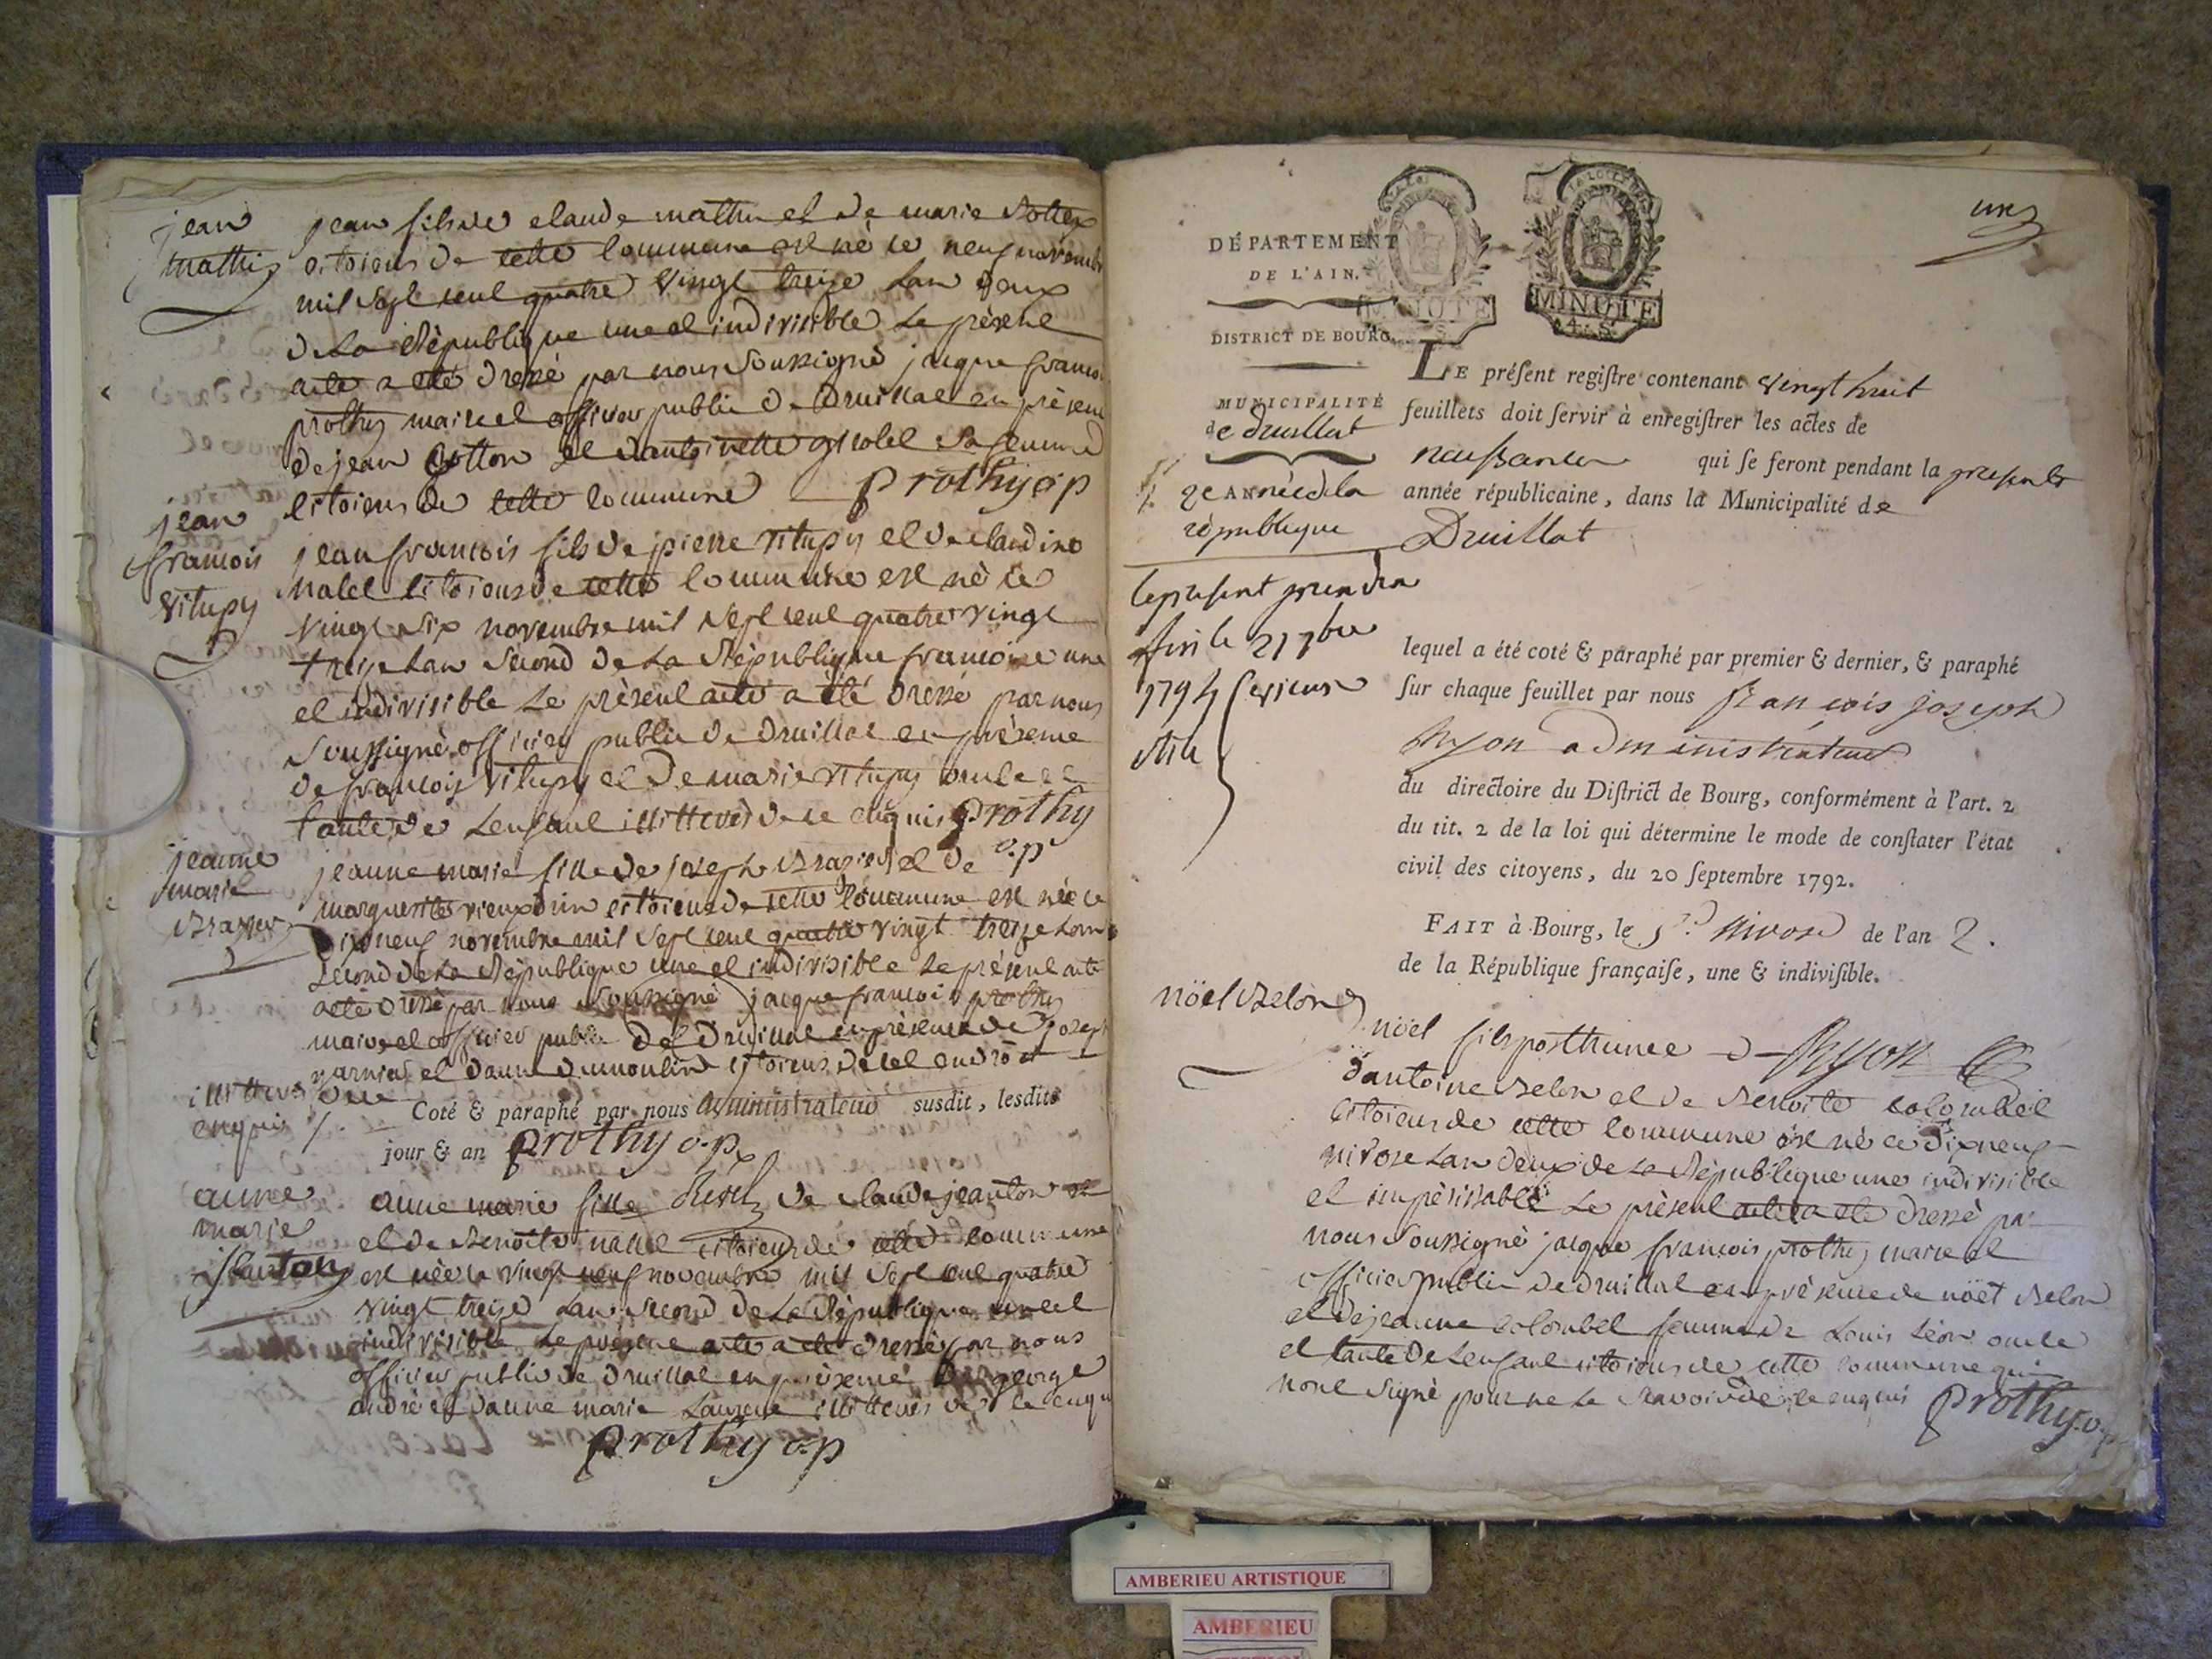 jean
mathy
jean fils de claude mathy et de marie
citoiens de cette commune est né le neuf novembre
mil sept cent quatre vingt treize lan deux
de La République une et indivisible Le présent
acte a eté dressé par nous Soussigné jacque francois
prothy maire et officier public de Druillat en présence
de jean et dantoinette sa femme
citoiens de cette commune prothy o.p
jean
francois
vitupy
jean francois fils de pierre vitupy et de claudine
citoiens de cette commune est né le
vingt six novembre mil sept cent quatre vingt
treize Lan Second de La République francoise une
et indivisible Le présent acte a été dressé par nous
Soussigné officier public de druillat en présence
de francois vitupy et de marie vitupy oncle et
tante de Lenfant illitteres de ce enquis prothy
o.p
jeanne
marie
jeanne marie fille de joseph et de
marguerite citoiens de cette commune est née le
dixneuf novembre mil sept cent quatre vingt treize Lan
Second de La République une et indivisible Le présent acte
acté dressé par nous Soussigné jacque francois prothy
maire et officier public de Druillat en présence de joseph
et danne dumoulin citoiens de cet endroit
illitteres de ce
enquis
Coté & paraphé par nous administrateur susdit, lesdits
jour & an prothy o.p
anne
marie
jeanton
anne marie fille de claude jeanton
et de Benoite citoiens de cette commune
est née le vingt neuf novembre mil sept cent quatre
vingt treize Lan Second de La République une et
indivisible Le présent acte a eté dressé par nous
officier public de druillat en présence de george
andré et danne marie Laurent illitteres de ce enquis
prothy o.p
une
DÉPARTEMENT
DE L'AIN.
MINUTE
MINUTE
4. S.
DISTRICT DE BOURG.
MUNICIPALITÉ
de druillat
2e ANNÉE de la
république
LE préſent regiſtre contenant vingt huit
feuillets doit ſervir à enregiſtrer les actes de
naissances qui ſe feront pendant la presente
année républicaine, dans la Municipalité de
Druillat
le present prendra
fin le 21 7bre
1794
lequel a été coté & paraphé par premier & dernier, & paraphé
ſur chaque feuillet par nous françois joseph
administrateur
du directoire du Diſtrict de Bourg, conformément à l'art. 2
du tit. 2 de la loi qui détermine le mode de conſtater l'état
civil des citoyens, du 20 ſeptembre 1792.
FAIT à Bourg, le nivose de l'an 2.
de la République françaiſe, une & indiviſible.
nöel Belon
nöel fils posthume
dantoine Belon et de Benoite colombel
citoiens de cette commune est né ce dixneuf
nivose Lan deux de La République une indivisible
et impérissable Le présent acte a ete dressé par
nous Soussigné jacque francois prothy maire et
officier public de druillat en présence de nöel Belon
et de jeanne colombel femme de Louis Léon oncle
et tante de Lenfant citoiens de cette commune qui
nont Signé pour ne Le Scavoir de ce enquis prothy o.p
AMBERIEU ARTISTIQUE
AMBERIEU